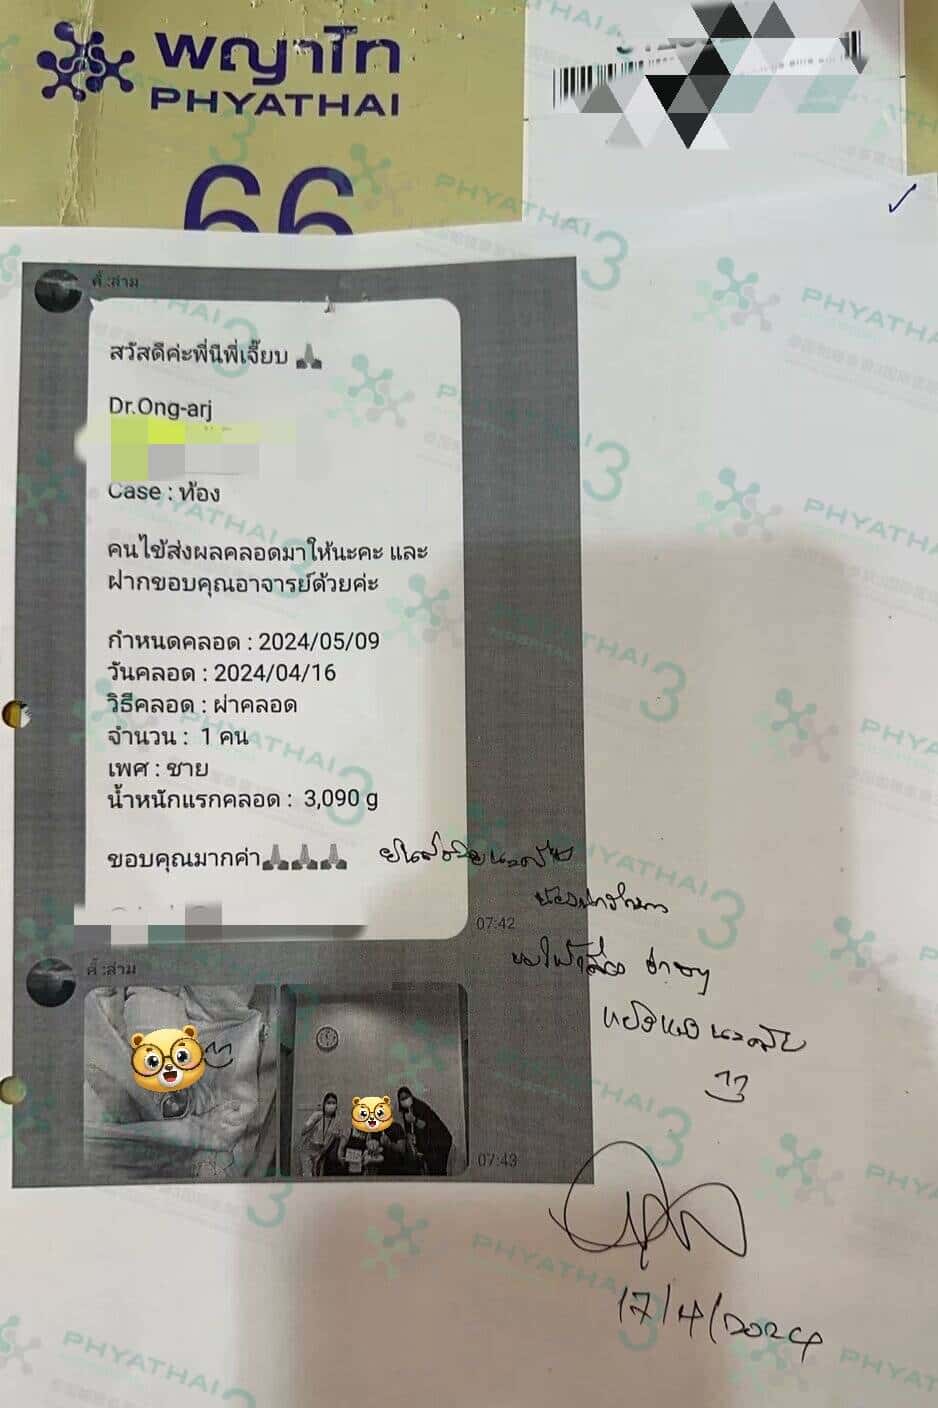 พญาไท
PHYATHAI
66
คี้ :ล่าม
สวัสดีค่ะพี่นีพี่เจี๊ยบ 🙏
Dr.Ong-arj
Case : ท้อง
คนไข้ส่งผลคลอดมาให้นะคะ และ
ฝากขอบคุณอาจารย์ด้วยค่ะ
กำหนดคลอด : 2024/05/09
วันคลอด : 2024/04/16
วิธีคลอด : ผ่าคลอด
จำนวน : 1 คน
เพศ : ชาย
น้ำหนักแรกคลอด : 3,090 g
ขอบคุณมากค่า🙏🙏🙏
07:42
คี้ :ล่าม
07:43
ขอให้เลี้ยง ง่ายๆ
17/4/2024
PHYATHAI 3